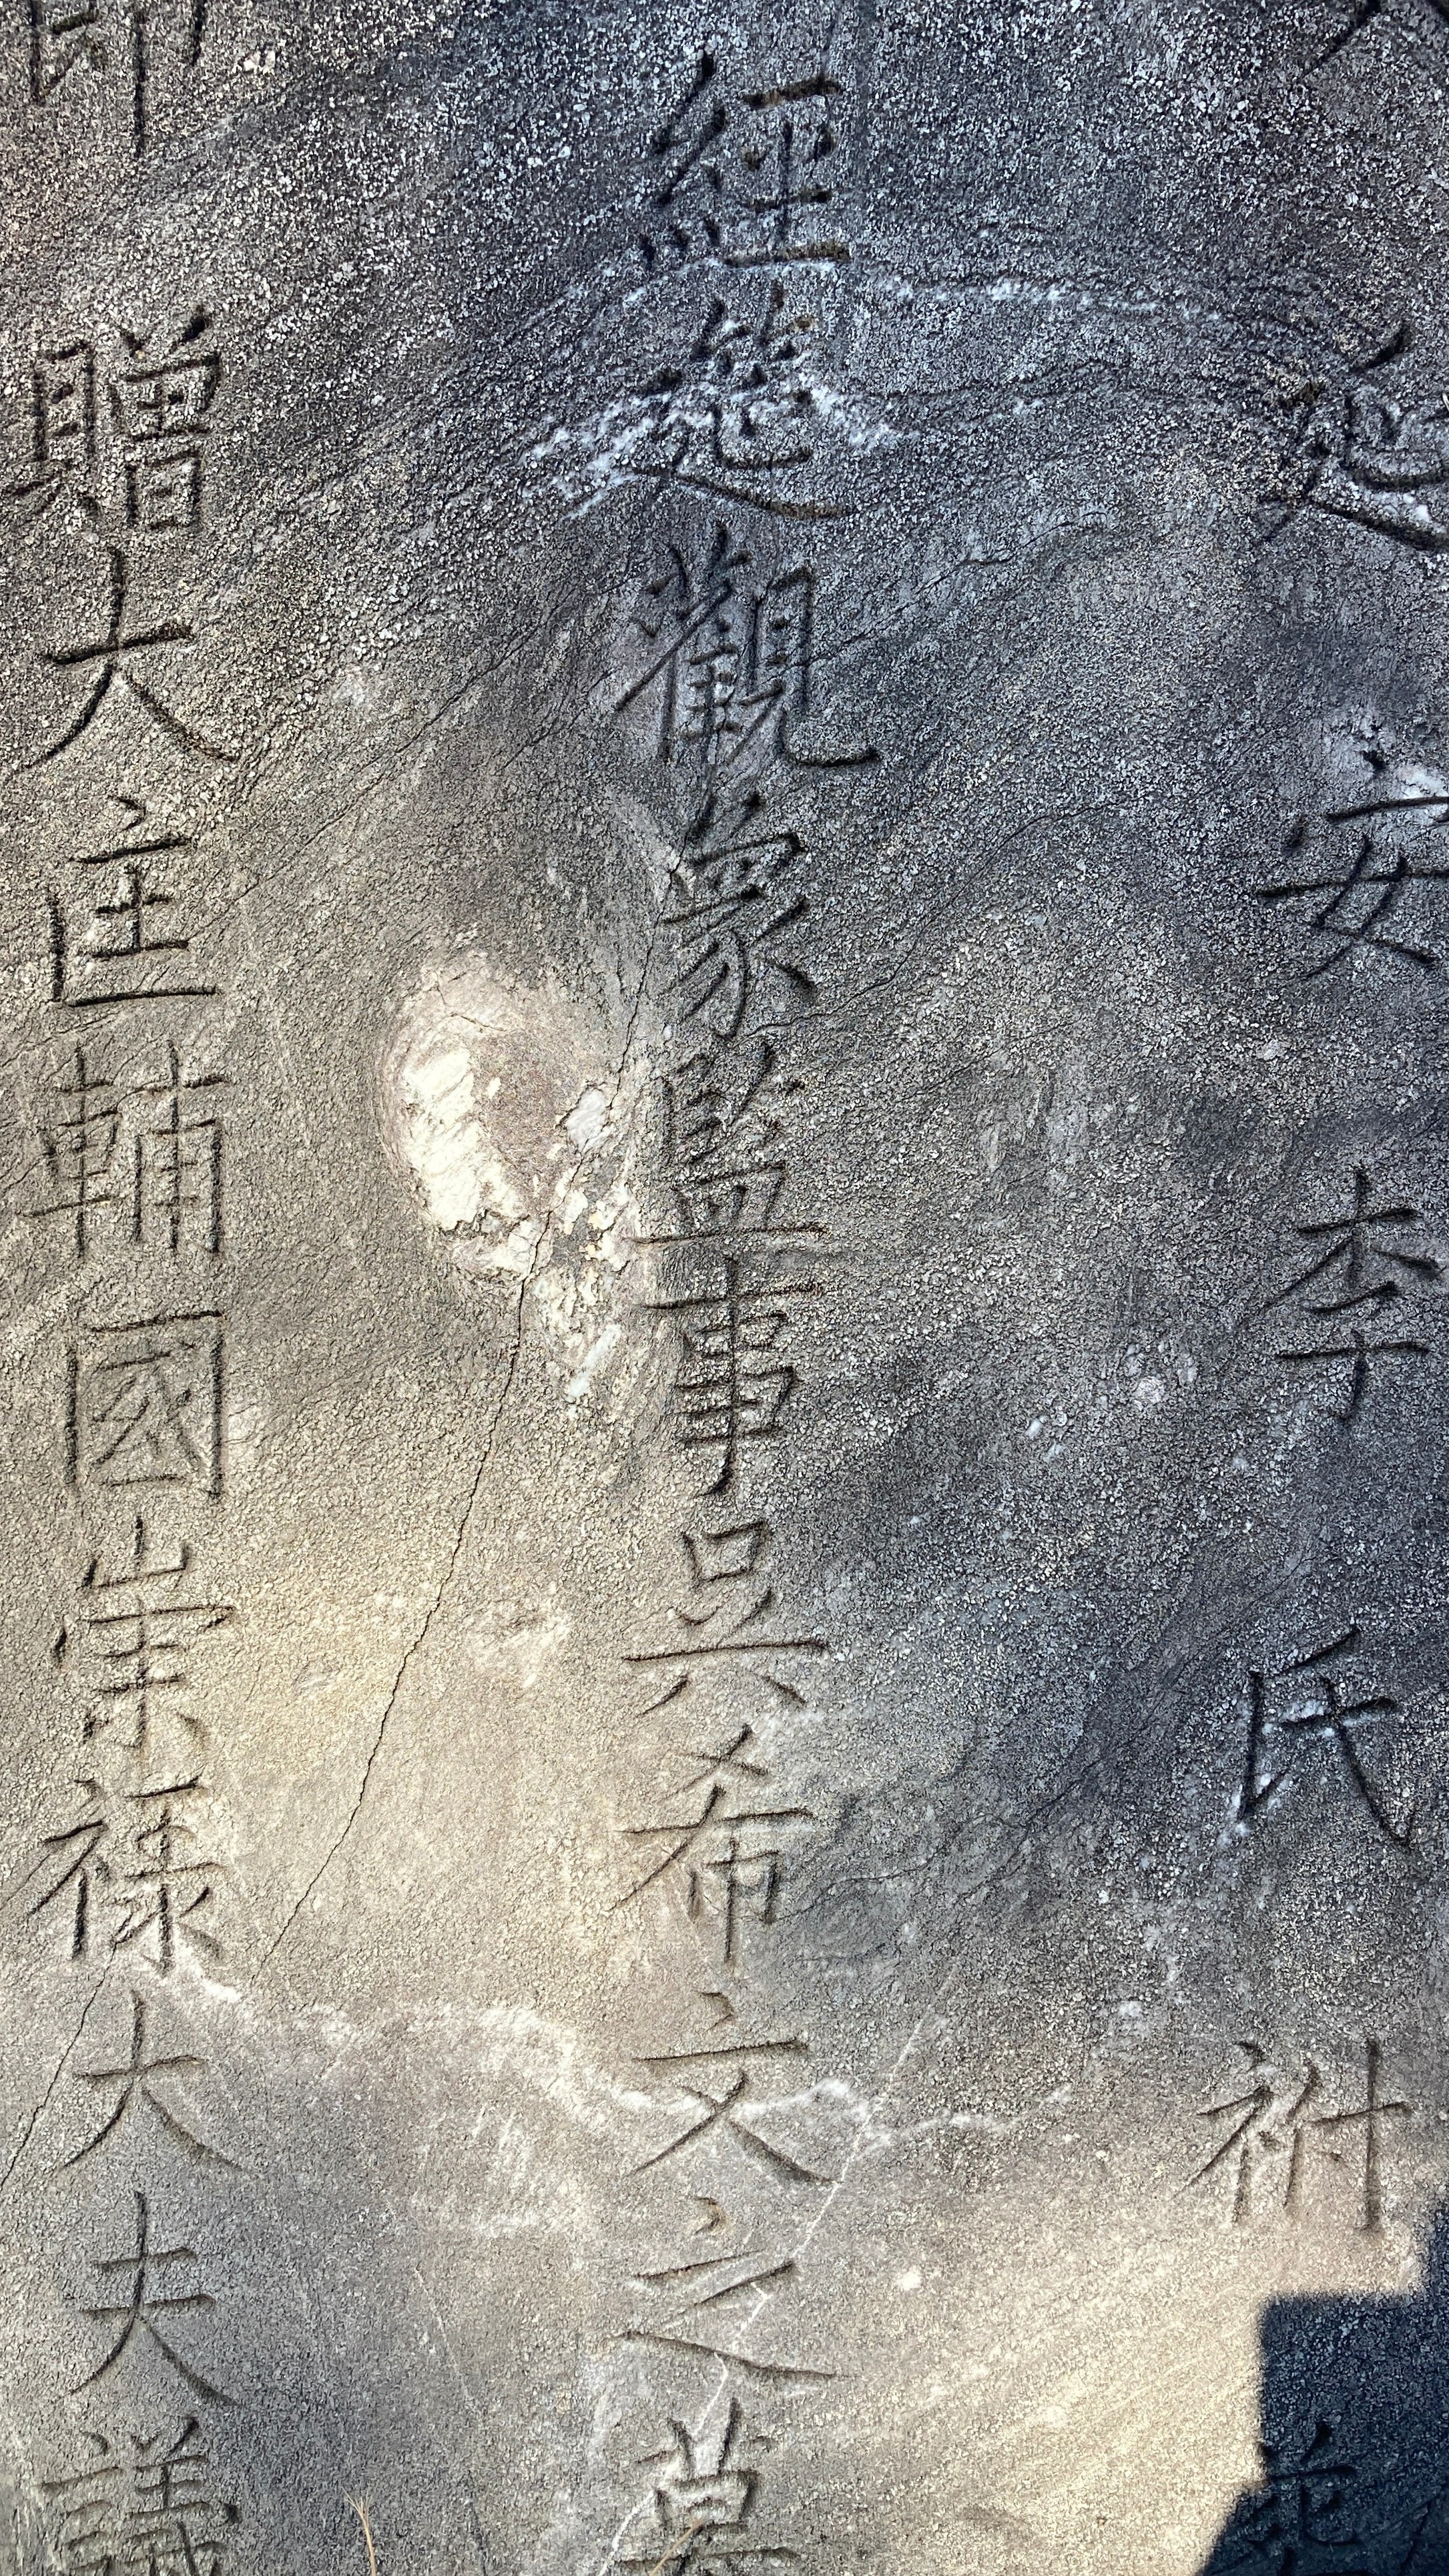 延安李氏祔
經筵觀象監事吳希文之墓
贈大匡輔國崇祿大夫議